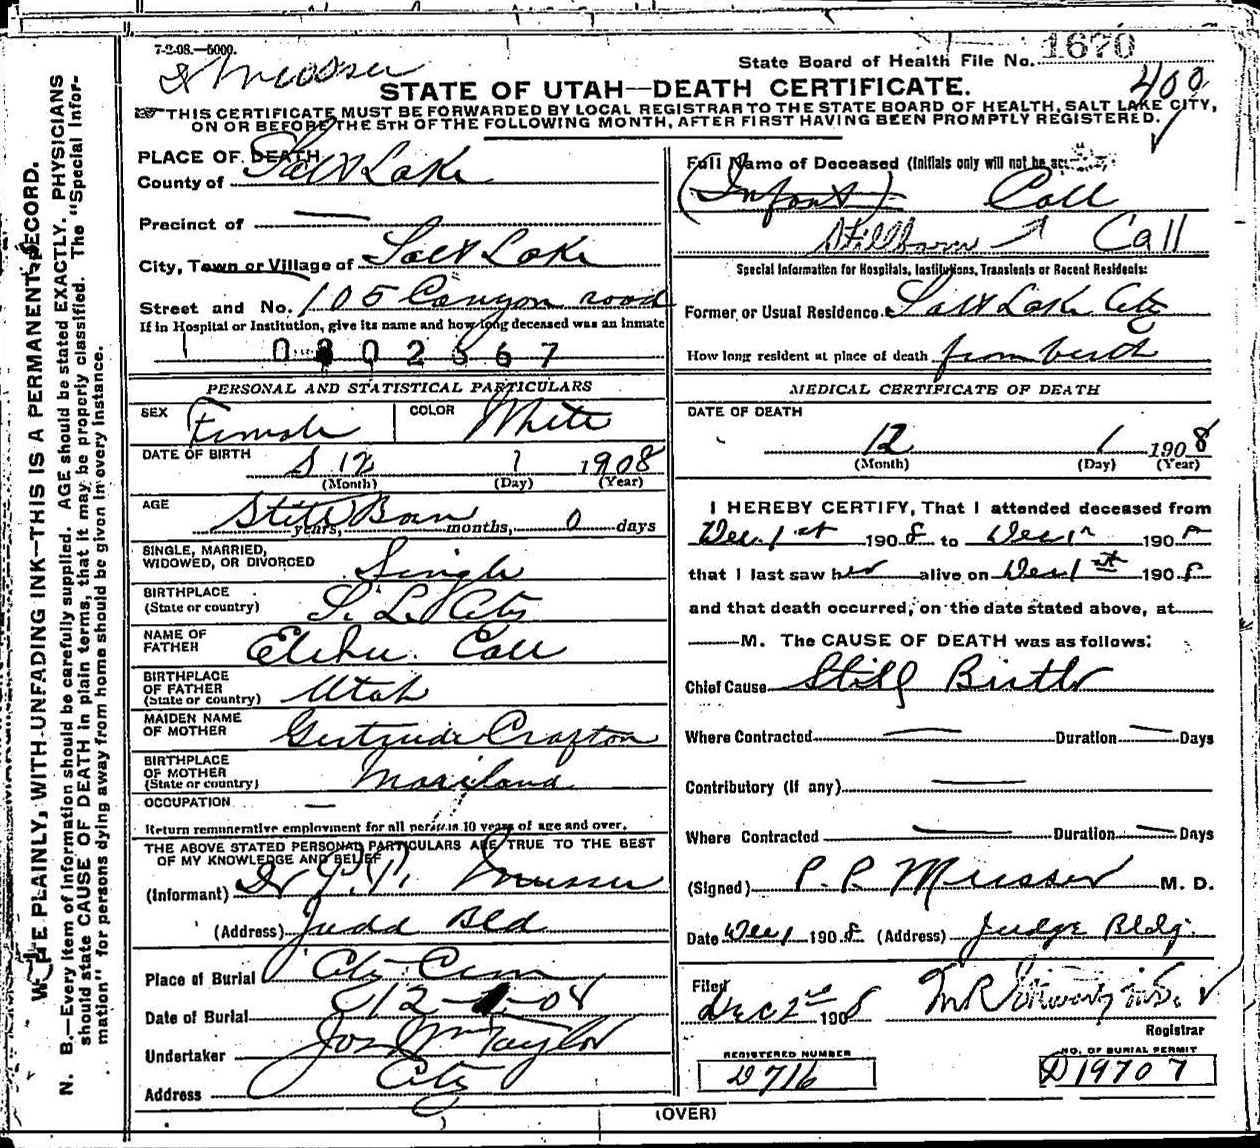 7-2-08.—5000.
State Board of Health File No. 1670
Musser
STATE OF UTAH—DEATH CERTIFICATE.
400
THIS CERTIFICATE MUST BE FORWARDED BY LOCAL REGISTRAR TO THE STATE BOARD OF HEALTH, SALT LAKE CITY,
ON OR BEFORE THE 5TH OF THE FOLLOWING MONTH, AFTER FIRST HAVING BEEN PROMPTLY REGISTERED.
W PLAINLY, WITH UNFADING INK—THIS IS A PERMANENT RECORD.
N. B.—Every item of information should be carefully supplied. AGE should be stated EXACTLY. PHYSICIANS
should state CAUSE OF DEATH in plain terms, that it may be properly classified. The "Special Infor-
mation" for persons dying away from home should be given in every instance.
PLACE OF DEATH
County of Salt Lake
Precinct of —
City, Town or Village of Salt Lake
Street and No. 105 Canyon road
If in Hospital or Institution, give its name and how long deceased was an inmate
0802567
PERSONAL AND STATISTICAL PARTICULARS
SEX Female COLOR White
DATE OF BIRTH 12 1 1908
(Month) (Day) (Year)
AGE Still Born
years, months, 0 days
SINGLE, MARRIED,
WIDOWED, OR DIVORCED Single
BIRTHPLACE
(State or country) S. L. City
NAME OF
FATHER Elihu Call
BIRTHPLACE
OF FATHER
(State or country) Utah
MAIDEN NAME
OF MOTHER Gertrude Crafton
BIRTHPLACE
OF MOTHER
(State or country) Mariland
OCCUPATION —
Return remunerative employment for all persons 10 years of age and over.
THE ABOVE STATED PERSONAL PARTICULARS ARE TRUE TO THE BEST
OF MY KNOWLEDGE AND BELIEF
(Informant) Dr P. P. Musser
(Address) Judd Bld
Place of Burial City Cem
Date of Burial 12 - -08
Undertaker Jos Wm Taylor
Address City
Full Name of Deceased (Initials only will not be
(Infant) Call
Stillborn Call
Special Information for Hospitals, Institutions, Transients or Recent Residents:
Former or Usual Residence Salt Lake City
How long resident at place of death from birth
MEDICAL CERTIFICATE OF DEATH
DATE OF DEATH
12 1 1908
(Month) (Day) (Year)
I HEREBY CERTIFY, That I attended deceased from
Dec. 1st 1908 to Dec 1st 1908
that I last saw her alive on Dec 1st 1908
and that death occurred, on the date stated above, at
M. The CAUSE OF DEATH was as follows:
Chief Cause Still Birth
Where Contracted — Duration — Days
Contributory (if any) —
Where Contracted — Duration — Days
(Signed) P. P. Musser M. D.
Date Dec 1 1908 (Address) Judge Bldg.
Filed
Dec 2nd 1908
Registrar
REGISTERED NUMBER
D 716
NO. OF BURIAL PERMIT
D 19707
(OVER)